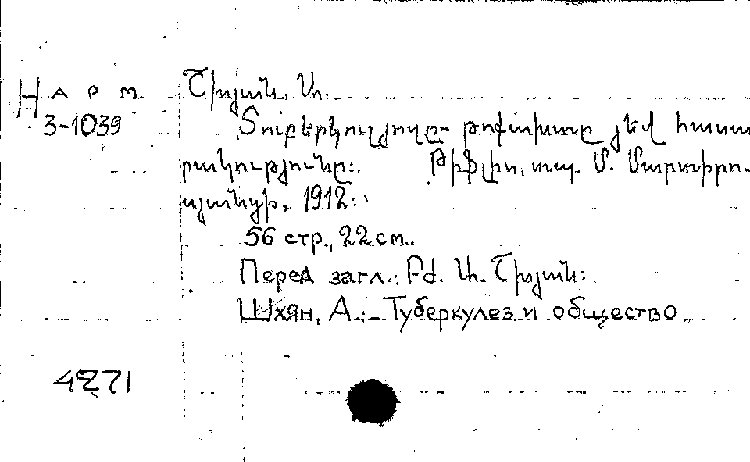 Н а р м Շխյան, Ա.
3-1039 Տուբերկուլյոզը- թոքախտը յեվ հասա
րակությունը։ Թիֆլիս, տպ. Մ. Մարտիրո-
սյանցի, 1912։
56 стр., 22 см.
Перед загл.: Բժ. Ա. Շխյան։
Шхян, А.:- Туберкулез и общество
4271